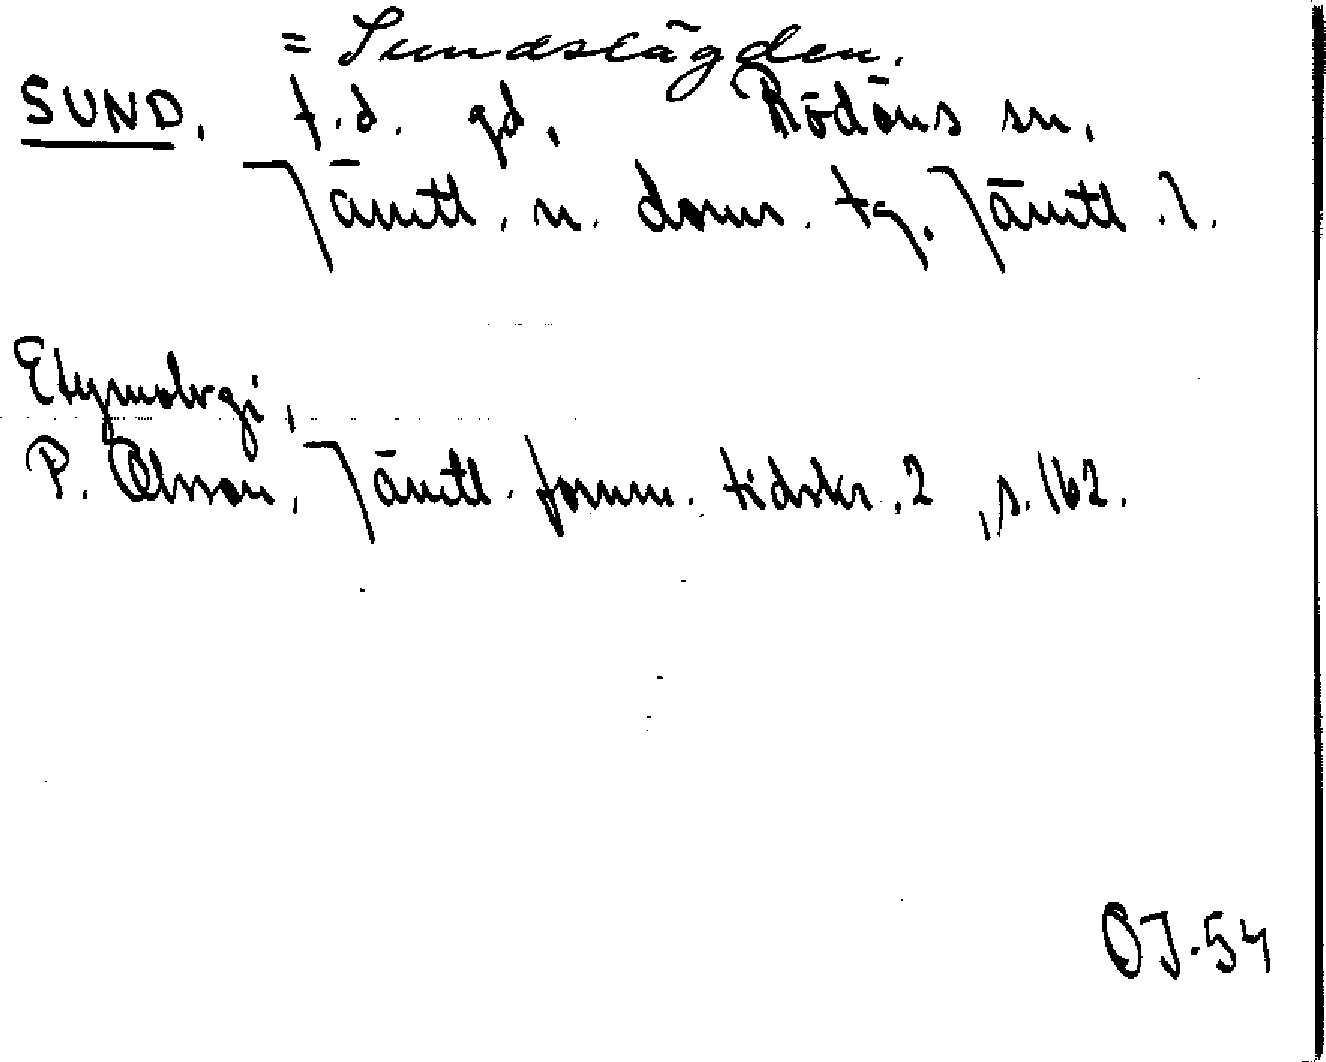 = Sundslägden.
SUND, f.d. gd, Rödöns sn,
Jämtl. n. doms. tg. Jämtl. l.
Etymologi,
P. Olsson, Jämtl. fornm. tidskr. 2, s. 162.
OJ-54